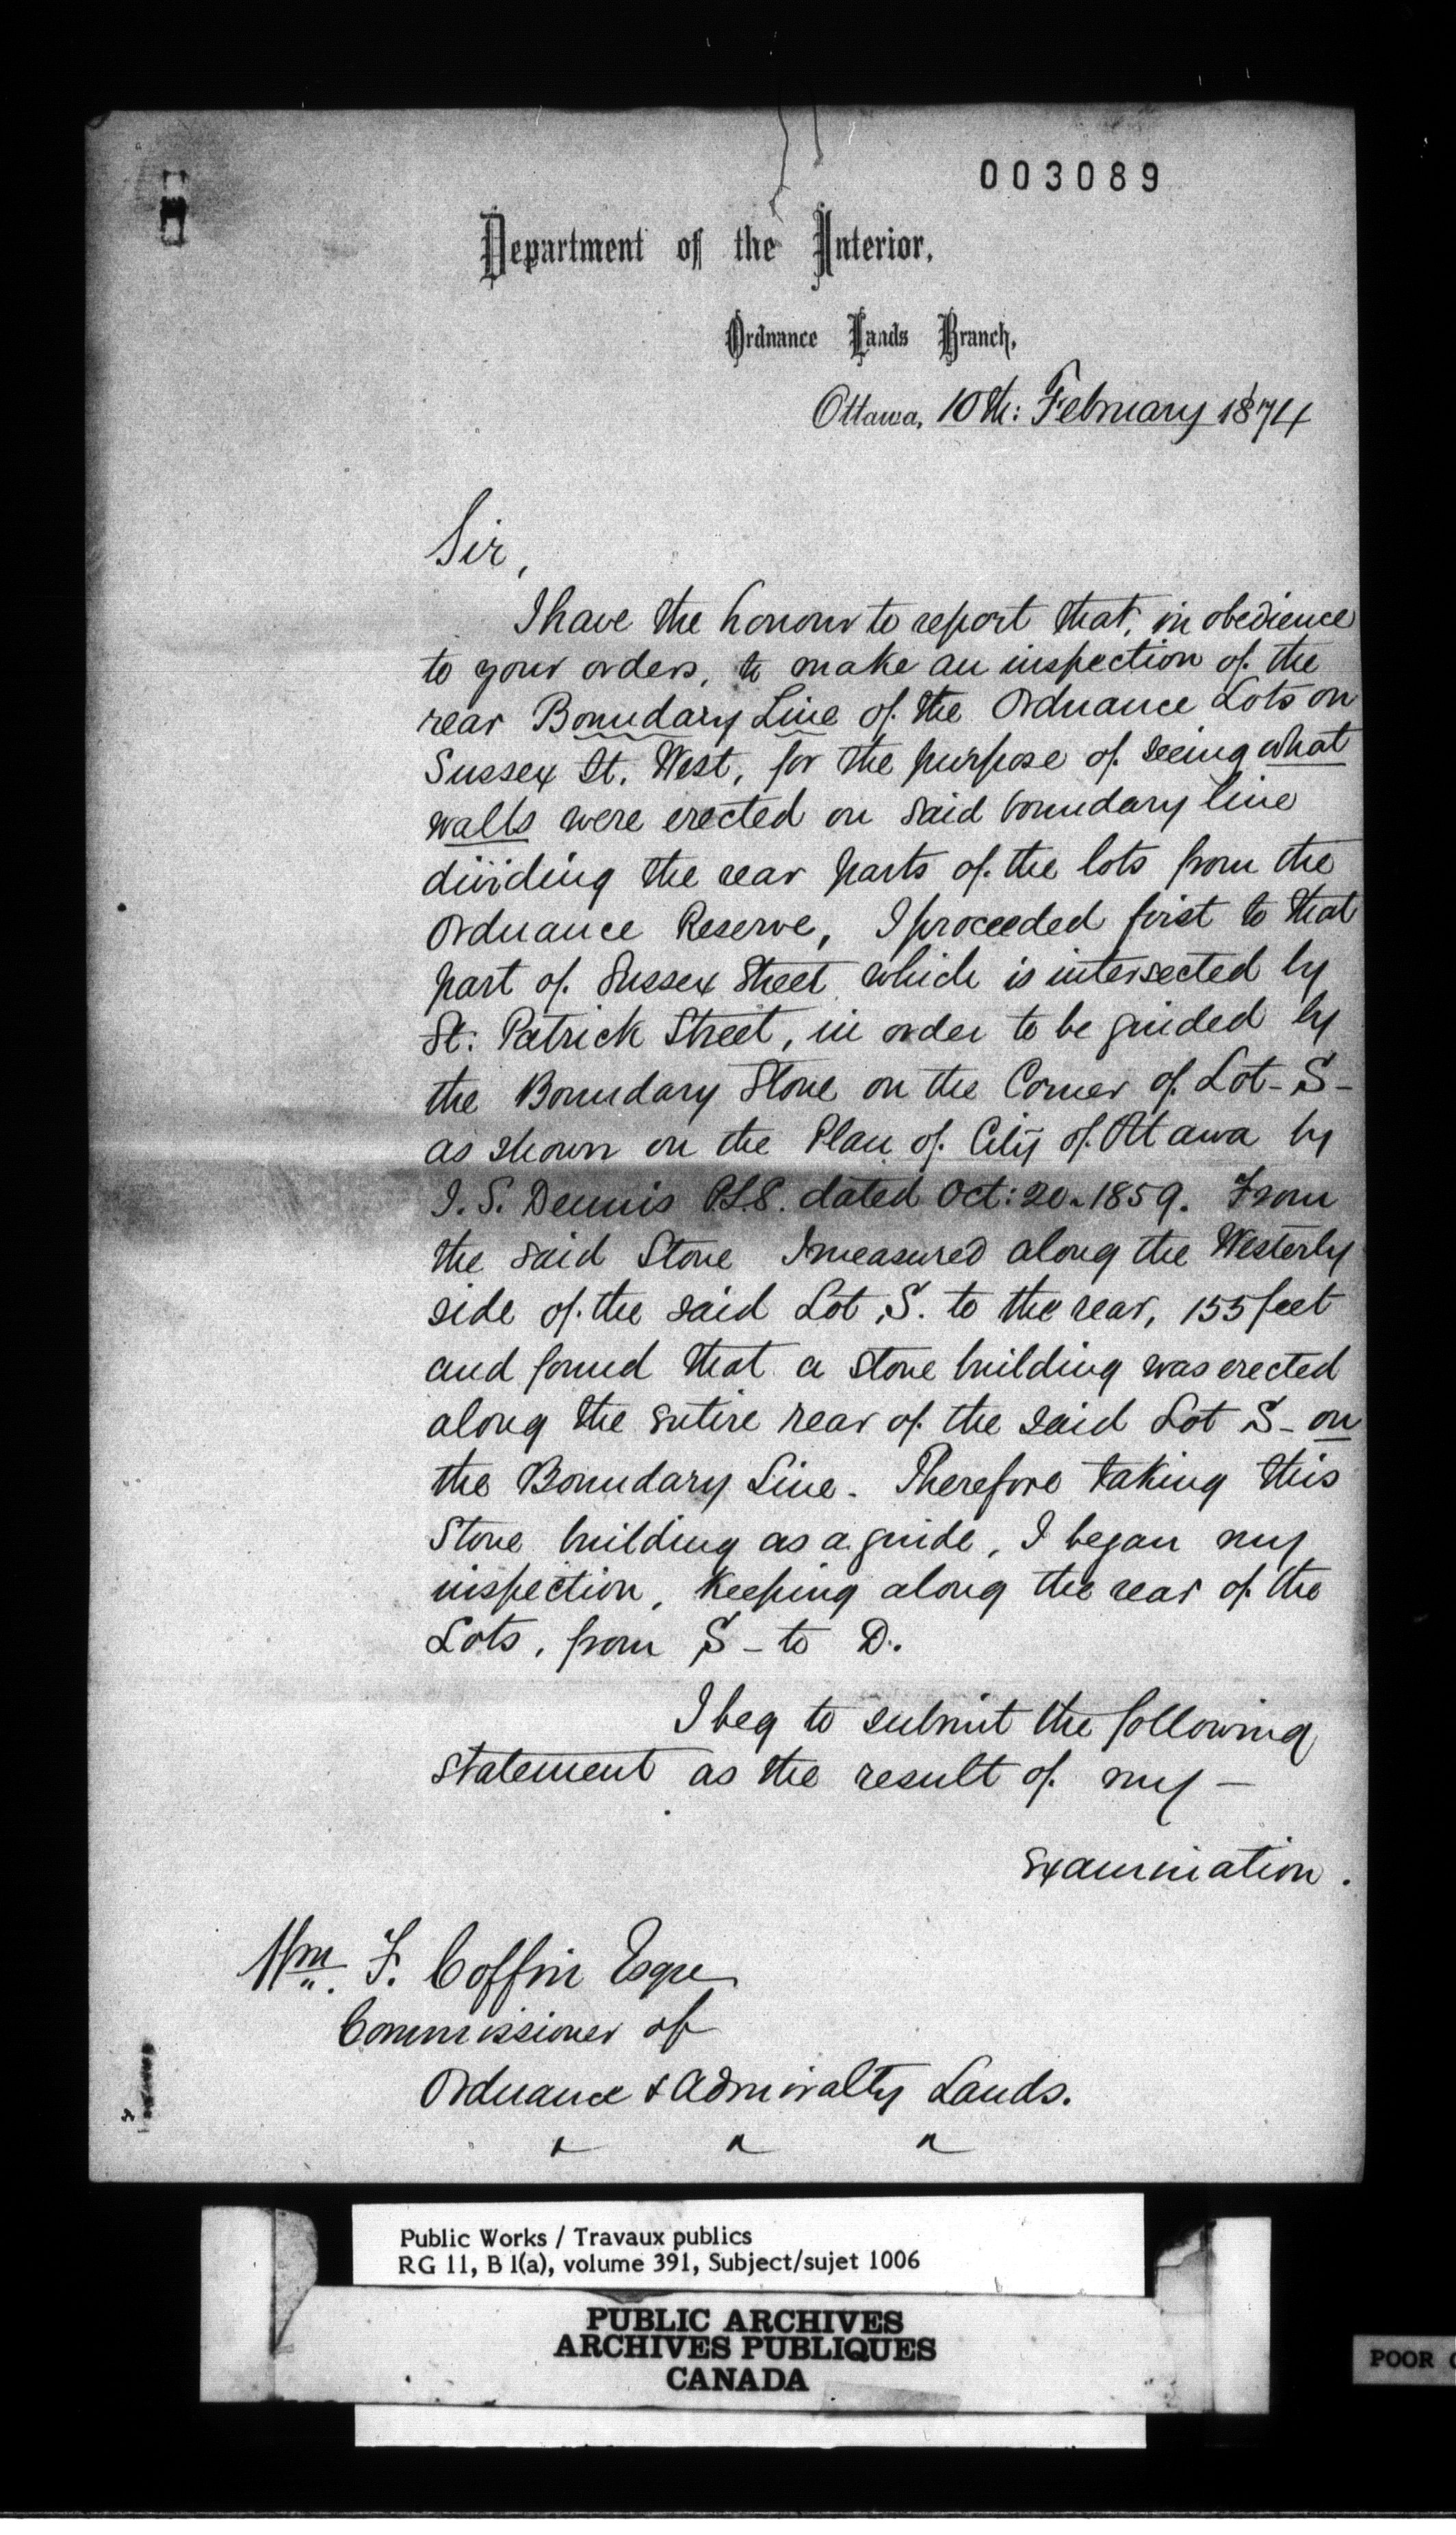 003089
Department of the Interior,
Ordnance Lands Branch,
Ottawa, 10th: February 1874
Sir,
I have the honour to report that, in obedience
to your orders, to make an inspection of the
rear Boundary Line of the Ordnance Lots on
Sussex St. West, for the purpose of seeing what
walls were erected on said boundary line
dividing the rear parts of the lots from the
Ordnance Reserve, I proceeded first to that
part of Sussex Street which is intersected by
St: Patrick Street, in order to be guided by
the Boundary Stone on the Corner of Lot - S -
as shown on the Plan of City of Ottawa by
J. S. Dennis P.L.S. dated Oct: 20. 1859. From
the said Stone I measured along the Westerly
side of the said Lot S. to the rear, 155 feet
and found that a stone building was erected
along the entire rear of the said Lot S - on
the Boundary Line. Therefore taking this
Stone building as a guide, I began my
inspection, keeping along the rear of the
Lots, from S - to D.
I beg to submit the following
statement as the result of my -
examination.
Wm. F. Coffin Esqre
Commissioner of
Ordnance & Admiralty Lands.
Public Works / Travaux publics
RG 11, B 1(a), volume 391, Subject/sujet 1006
PUBLIC ARCHIVES
ARCHIVES PUBLIQUES
CANADA
POOR